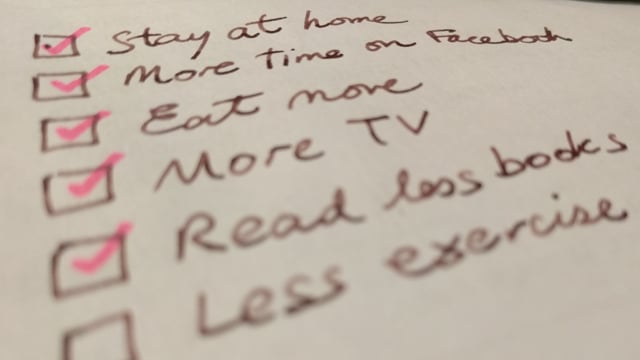 Stay at home
More time on Facebook
Eat more
More TV
Read less books
Less exercise